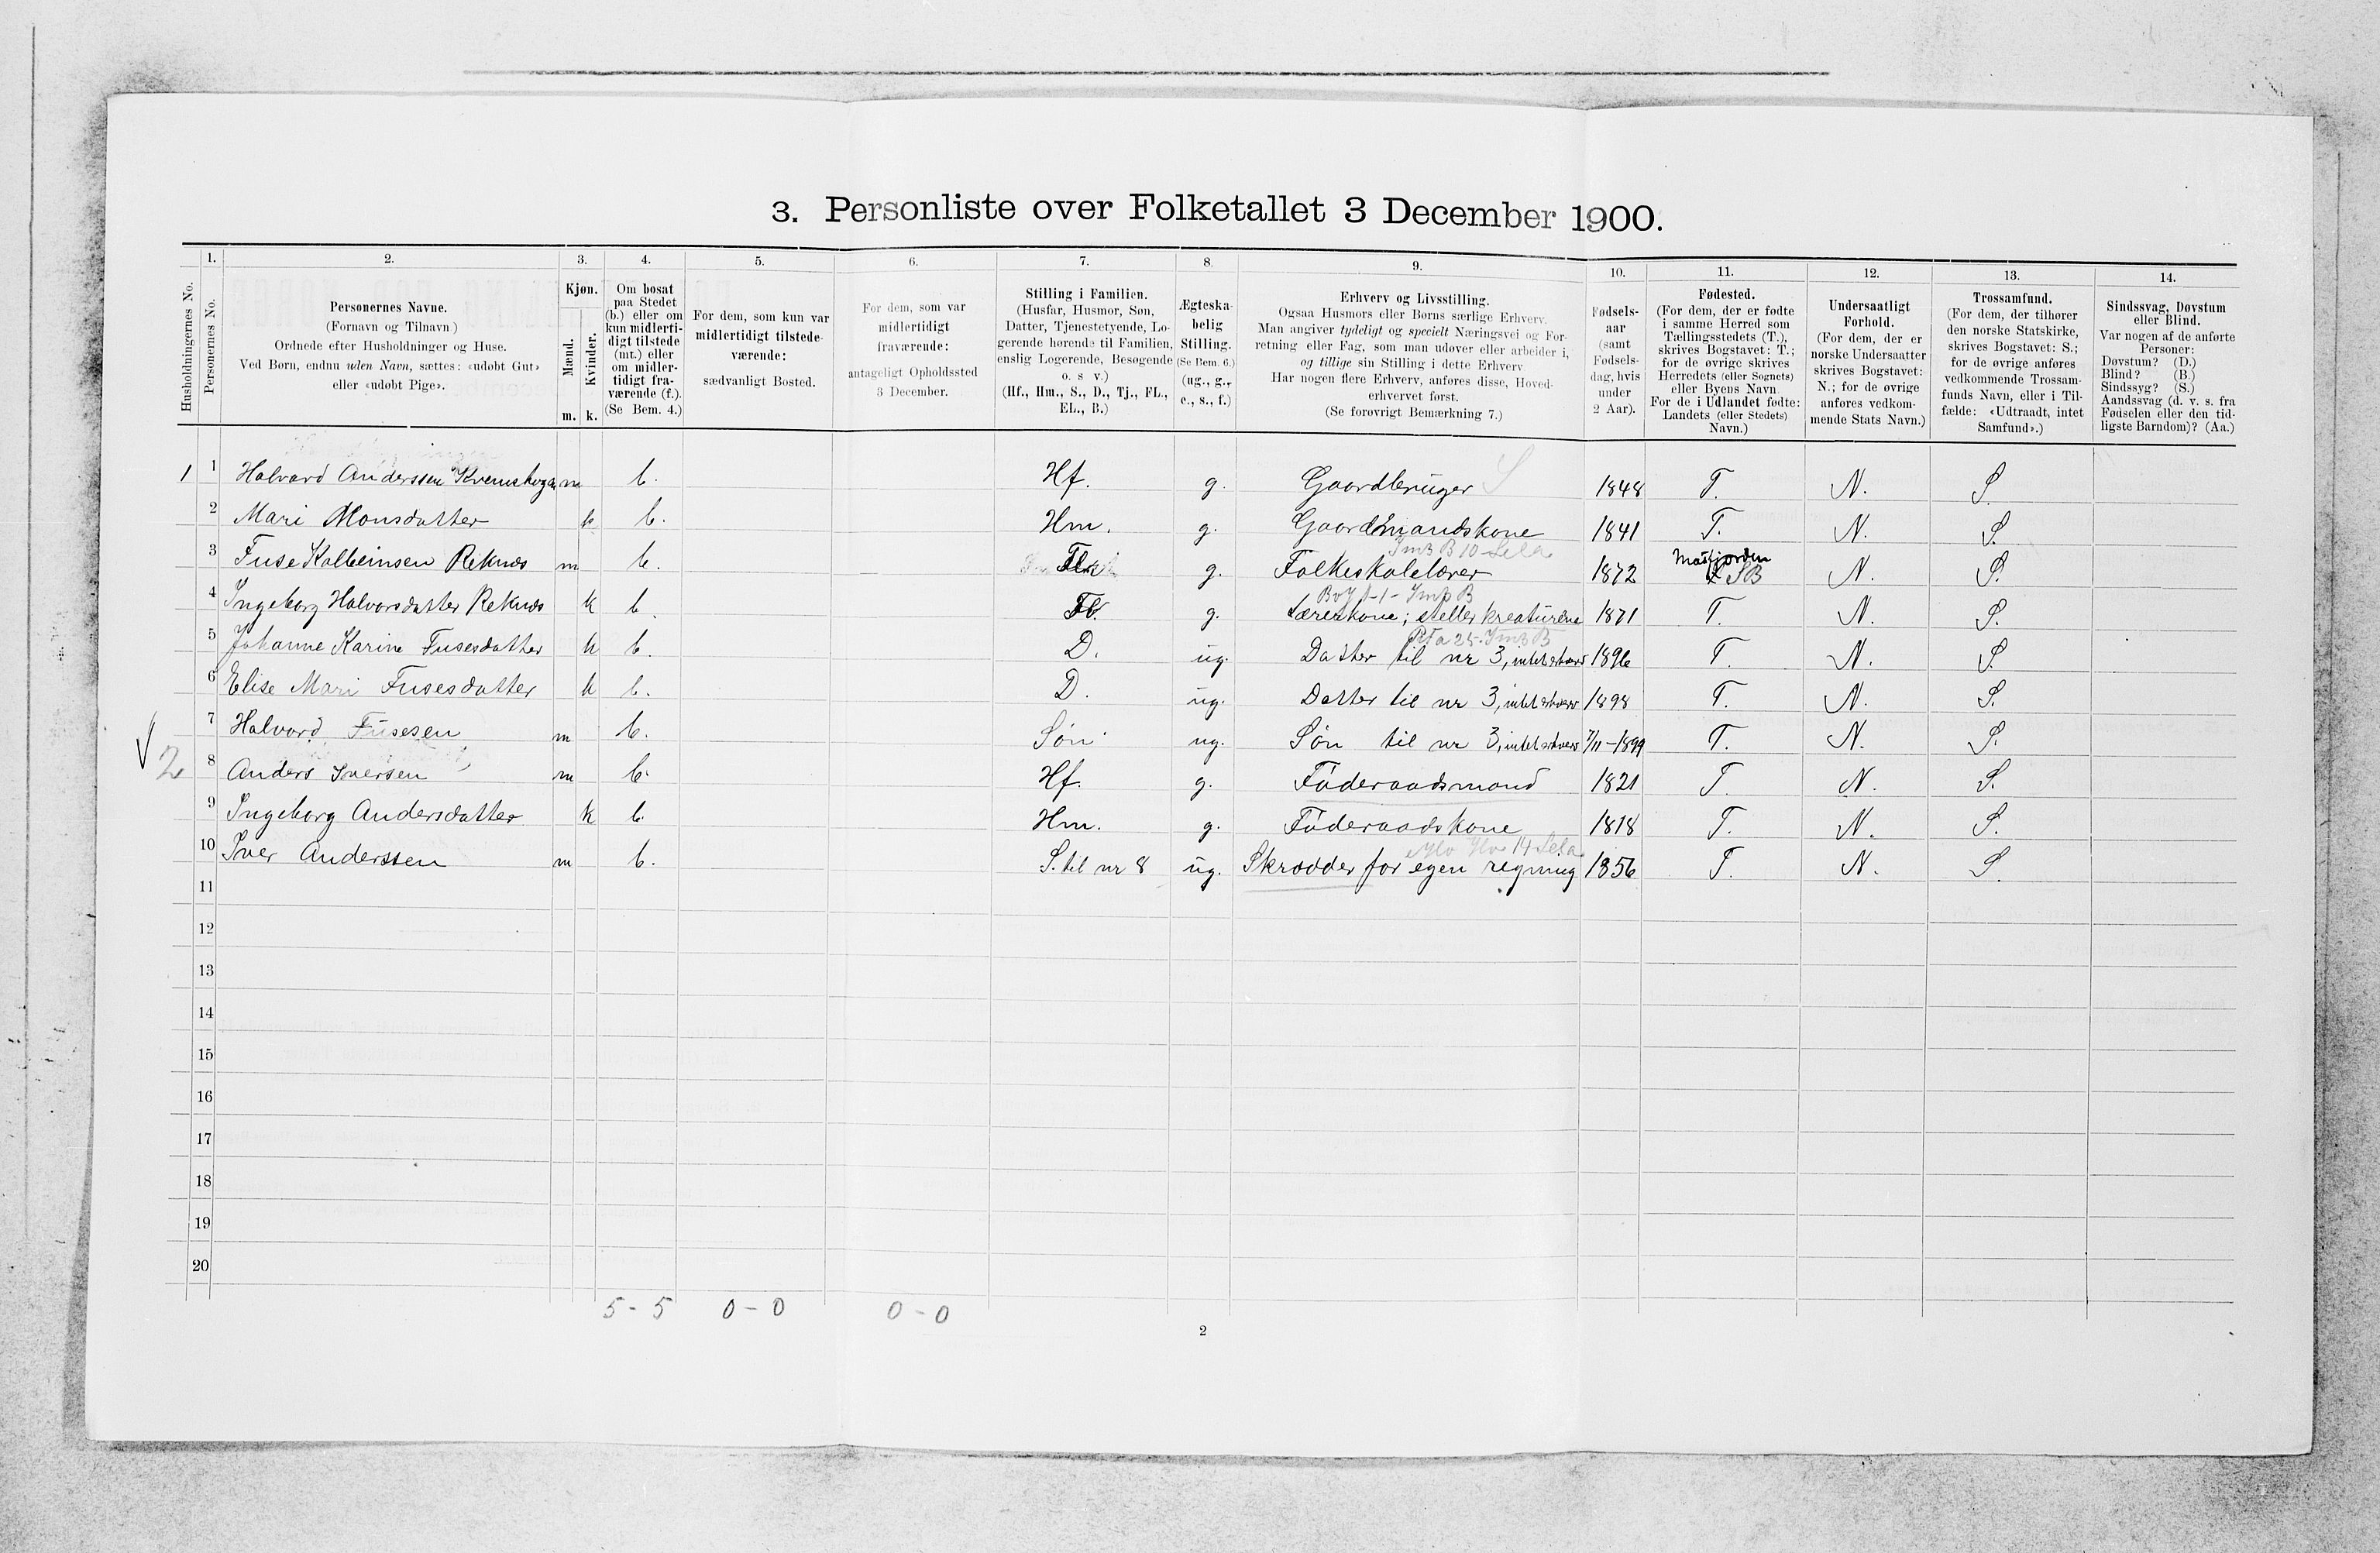 3. Personliste over Folketallet 3 December 1900.
1. 2. 3. 4. 5. 6. 7. 8. 9. 10. 11. 12. 13. 14.
Husholdningernes No.
Personernes No.
Personernes Navne.
(Fornavn og Tilnavn)
Ordnede efter Husholdninger og Huse.
Ved Børn, endnu uden Navn, sættes: «udøbt Gut»
eller «udøbt Pige».
Kjøn.
Mænd.
Kvinder.
m. k.
Om bosat
paa Stedet
(b.) eller om
kun midlerti-
digt tilstede
(mt.) eller
om midler-
tidigt fra-
værende (f.).
(Se Bem. 4.)
For dem, som kun var
midlertidigt tilstede-
værende:
sædvanligt Bosted.
For dem, som var
midlertidigt
fraværende:
antageligt Opholdssted
3 December.
Stilling i Familien.
(Husfar, Husmor, Søn,
Datter, Tjenestetyende, Lo-
gerende hørende til Familien,
enslig Logerende, Besøgende
o. s v.)
(Hf., Hm., S., D., Tj., FL.,
EL., B.)
Ægteska-
belig
Stilling.
(Se Bem. 6.)
(ug., g.,
e., s., f.)
Erhverv og Livsstilling.
Ogsaa Husmors eller Børns særlige Erhverv.
Man angiver tydeligt og specielt Næringsvei og For-
retning eller Fag, som man udøver eller arbeider i,
og tillige sin Stilling i dette Erhverv.
Har nogen flere Erhverv, anføres disse, Hoved-
erhvervet først.
(Se forøvrigt Bemærkning 7.)
Fødsels-
aar
(samt
Fødsels-
dag, hvis
under
2 Aar).
Fødested.
(For dem, der er fødte
i samme Herred som
Tællingsstedets (T.),
skrives Bogstavet: T.;
for de øvrige skrives
Herredets (eller Sognets)
eller Byens Navn
For de i Udlandet fødte:
Landets (eller Stedets)
Navn.)
Undersaatligt
Forhold.
(For dem, der er
norske Undersaatter
skrives Bogstavet:
N.; for de øvrige
anføres vedkom-
mende Stats Navn.)
Trossamfund.
(For dem, der tilhører
den norske Statskirke,
skrives Bogstavet: S.;
for de øvrige anføres
vedkommende Trossam-
funds Navn, eller i Til-
fælde: «Udtraadt, intet
Samfund».)
Sindssvag, Døvstum
eller Blind.
Var nogen af de anførte
Personer:
Døvstum? (D.)
Blind? (B.)
Sindssyg? (S.)
Aandssvag (d. v. s. fra
Fødselen eller den tid-
ligste Barndom)? (Aa.)
1 1 Halvard Anderssen m b. Hf. g. Gaardbruger 1848 T. N. S.
2 Mari Monsdatter k b. Hm. g. Gaardmandskone 1841 T. N. S.
3 Fuse Kolbeinsen Reknes m b. g. Folkeskolelærer 1872 Masfjorden SB N. S.
4 Ingeborg Halvorsdatter Reknes k b. g. Lærerkone; steller kreaturene 1871 T. N. S.
5 Johanne Karine Fusesdatter k b. D. ug. Datter til nr 3, intet erhverv 1896 T. N. S.
6 Elise Mari Fusesdatter k b. D. ug. Datter til nr 3, intet erhverv 1898 T. N. S.
7 Halvord Fusesen m b. Søn ug. Søn til nr 3, intet erhverv 7/11-1899 T. N. S.
2 8 Anders Iversen m b. Hf. g. Føderaadsmand 1821 T. N. S.
9 Ingeborg Andersdatter k b. Hm. g. Føderaadskone 1818 T. N. S.
10 Iver Anderssen m b. S. til nr 8 ug. Skrædder for egen regning 1856 T. N. S.
11
12
13
14
15
16
17
18
19
20
5 - 5 0 - 0 0 - 0
2